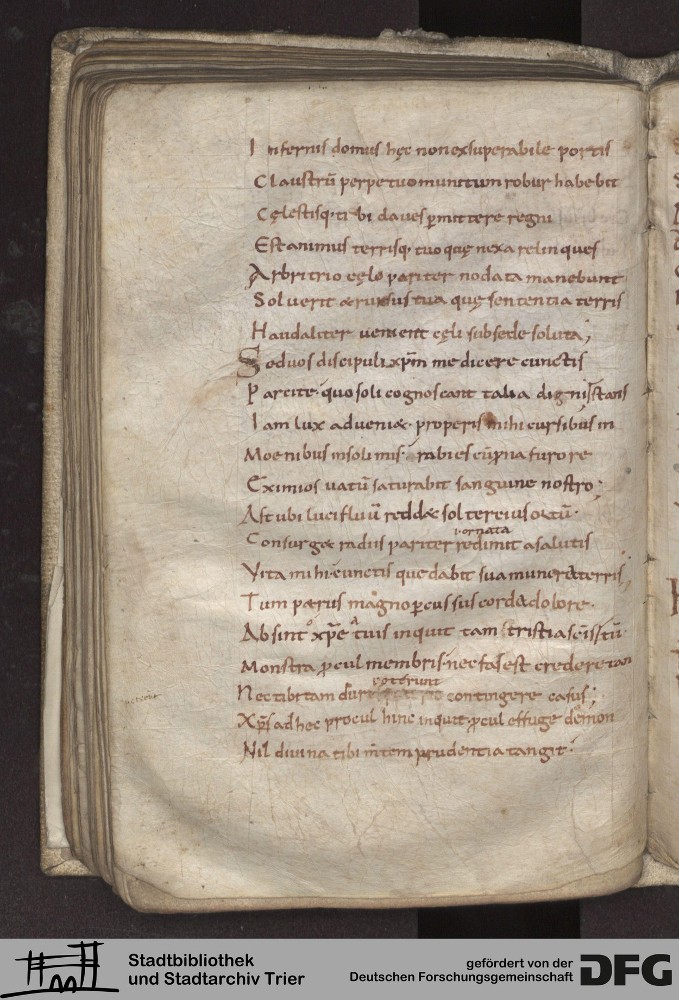 Infernis domus hęc non exsuperabile portis
Claustrũ perpetuo munitum robur habebit
Cęlestisq; tibi claves ꝑmittere regni
Est animus terrisq; tuo quę nexa relinques
Arbitrio cęlo pariter nodata manebunt
Solverit & rursus tua quę sententia terris
Haud aliter venient cęli sub sede soluta;
Sed uos discipuli xp̃m me dicere cunctis
Parcite quo soli cognoscant talia digni
Iam lux adueni& properis mihi cursibus in
Moenibus in solimis rabies cũ
Eximios uatũ saturabit sanguine nostro;
Ast ubi lucifluũ redd& sol tercius ortũ
uornata
Consurg& radiis pariter redimit a salutis
Vita mihi cunctis que dabit sua munera terris;
Tum p&rus magno ꝑcussus corda dolore.
Absint o xp̃e a tuis inquit tam tristia sc̃is
Monstra ꝓcul membris. nec fas est credere
poterunt
Nec tibi tam contingere casus;
Xp̃s ad hec procul hinc inquit ꝓcul effuge demon
Nil diuina tibi m̃tem prudentia tangit.
Stadtbibliothek
und Stadtarchiv Trier
gefördert von der
Deutschen Forschungsgemeinschaft
DFG